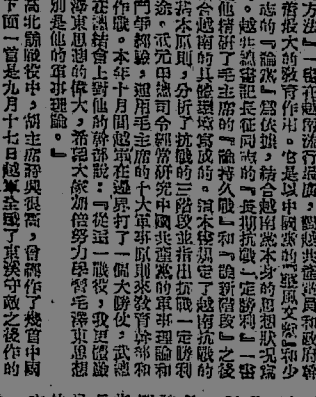 方法』一書在越南流行甚廣,對越共黨員和政府幹
有很大的教育作用。它是以中國黨的『整風文獻』和少
志的『論黨』爲依據,結合越南黨本身的思想狀況寫
。越共總書記長征同志的『長期抗戰一定勝利』一書
他精研了毛主席的『論持久戰』和『論新階段』之後
合越南的具體環境寫成的。這本書規定了越南抗戰的
基本原則,分析了抗戰的三階段並指出抗戰一定勝利
途。武元甲總司令經常研究中國共產黨的軍事理論和
鬥爭經驗,運用毛主席的十大軍事原則來教育幹部和
作戰。本年十月間越軍在邊界打了一個大勝仗,武總
在慰勞會上對他的幹部說:『從這一戰役,我更體驗
澤東思想的偉大,希望大家加倍努力學習毛澤東思想
別是他的軍事理論。』
高北戰役中,胡主席詩興很高,曾經作了幾首中國
下面一首是九月十七日越軍全殲了東溪守敵之後作的